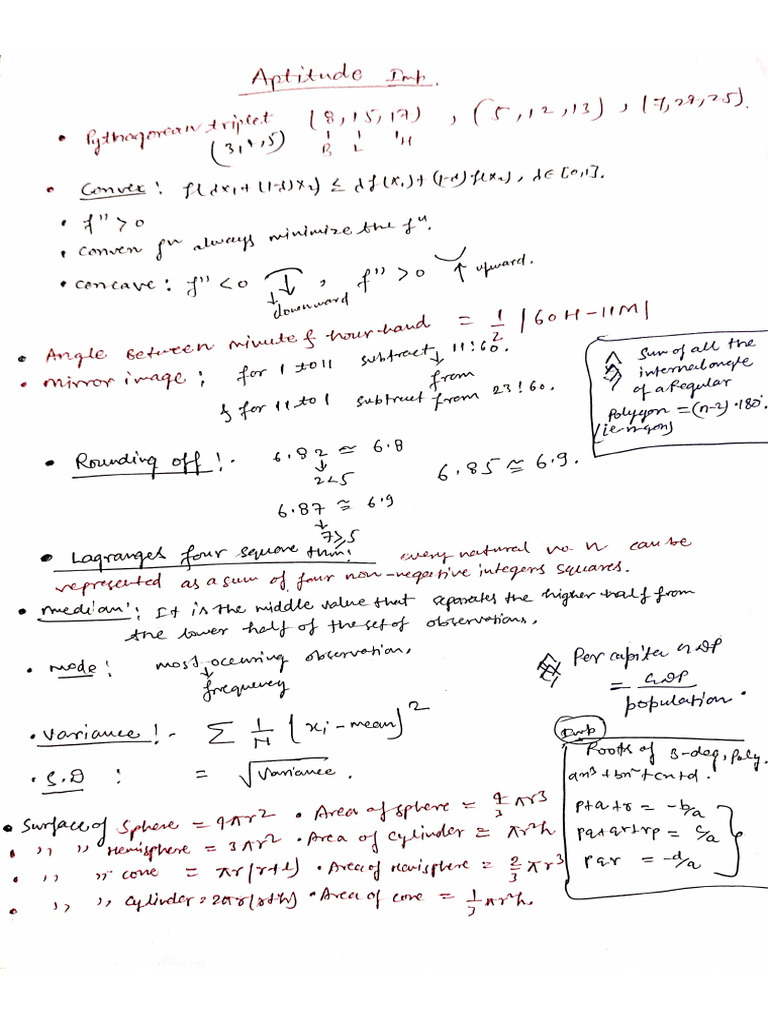 Aptitude Imp.
• Pythagorean triplet (8,15,17), (5,12,13), (7,24,25).
(3,4,5) B L H
• Convex: f(λx₁+(1-λ)x₂) ≤ λf(x₁)+(1-λ)f(x₂), λ∈[0,1].
• f" > 0
• Convex fⁿ always minimize the fⁿ.
• Concave: f" < 0 ↓, f" > 0 ↑ upward.
downward
• Angle Between minute & hour-hand = 1/2 |60H-11M|
• Mirror image: for 1 to 11 subtract 11:60.
from
& for 11 to 1 subtract from 23:60.
Sum of all the
internal angle
of a Regular
Polygon = (n-2)·180°.
(ie n-gon)
• Rounding off!- 6.82 ≃ 6.8
2<5
6.85 ≅ 6.9.
6.87 ≃ 6.9
7≥5
• Lagranges four square thm: every natural no. n can be
represented as a sum of four non-negative integers squares.
• median: It is the middle value that separates the higher half from
the lower half of the set of observations.
• mode: most occuring observation.
frequency
Per capita GDP
= GDP/population.
• Variance!- Σ 1/N (xᵢ-mean)²
• S.D : = √Variance.
Imp
Roots of 3-deg. poly.
ax³+bx²+cx+d.
p+q+r = -b/a
pq+qr+rp = c/a
pqr = -d/a
• Surface of Sphere = 4πr² • Area of sphere = 4/3 πr³
• ,, ,, Hemisphere = 3πr² • Area of Cylinder = πr²h
• ,, ,, cone = πr(r+l) • Area of Hemisphere = 2/3 πr³
• ,, ,, Cylinder = 2πr(r+h) • Area of cone = 1/3 πr²h.